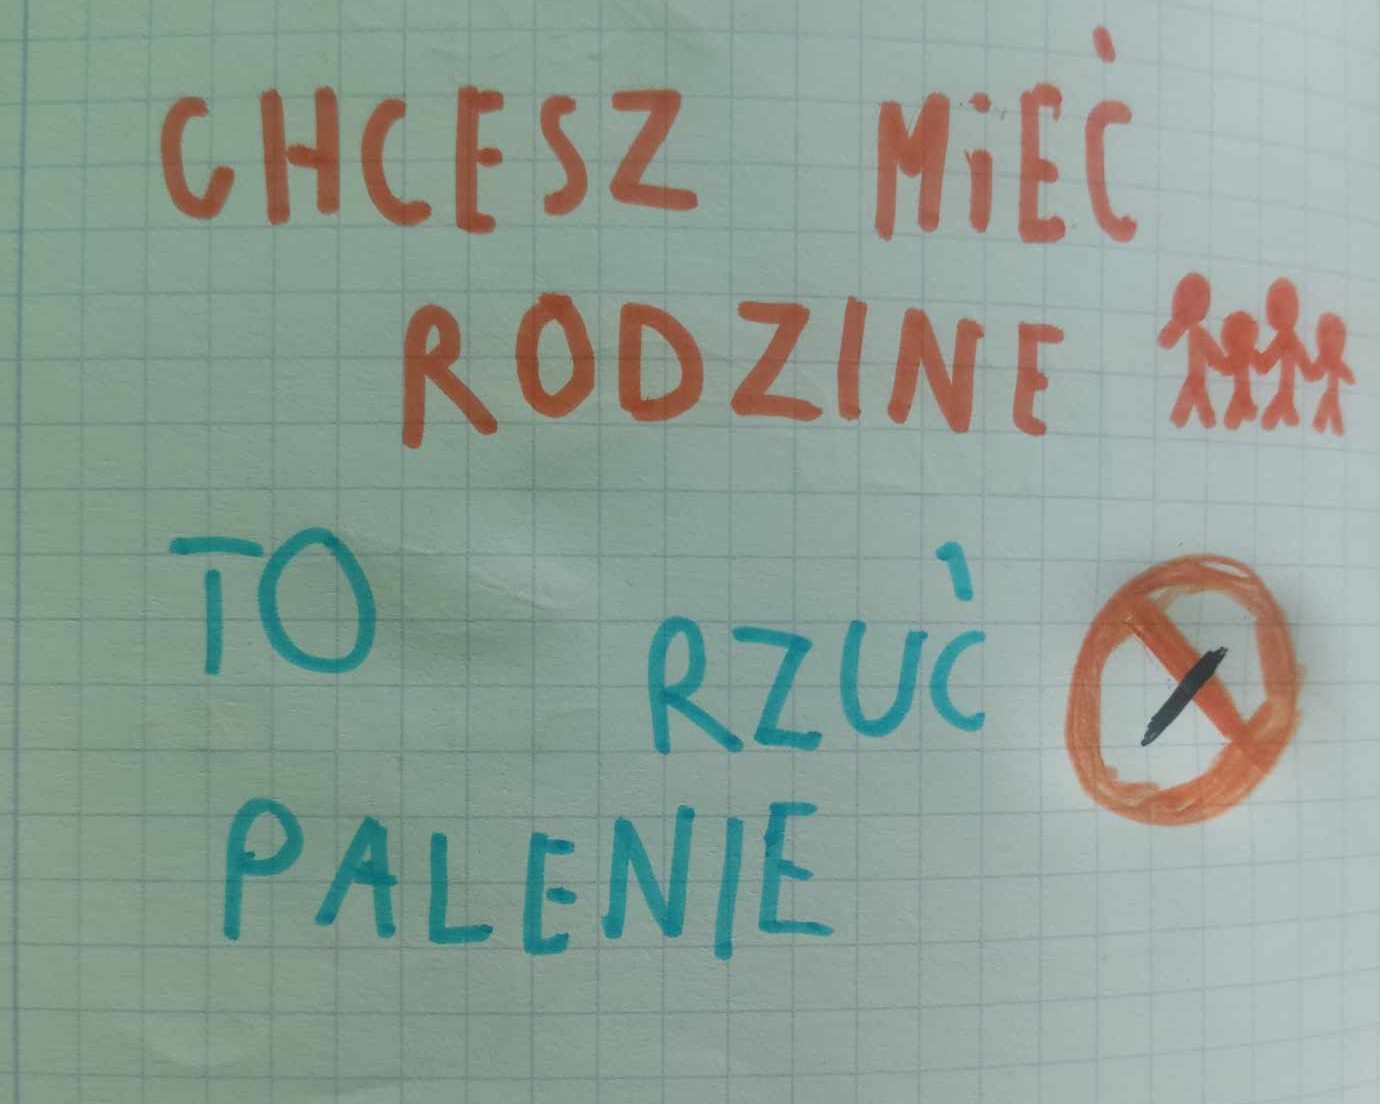 CHCESZ MiEĆ
RODZINE
TO RZUĆ
PALENIE